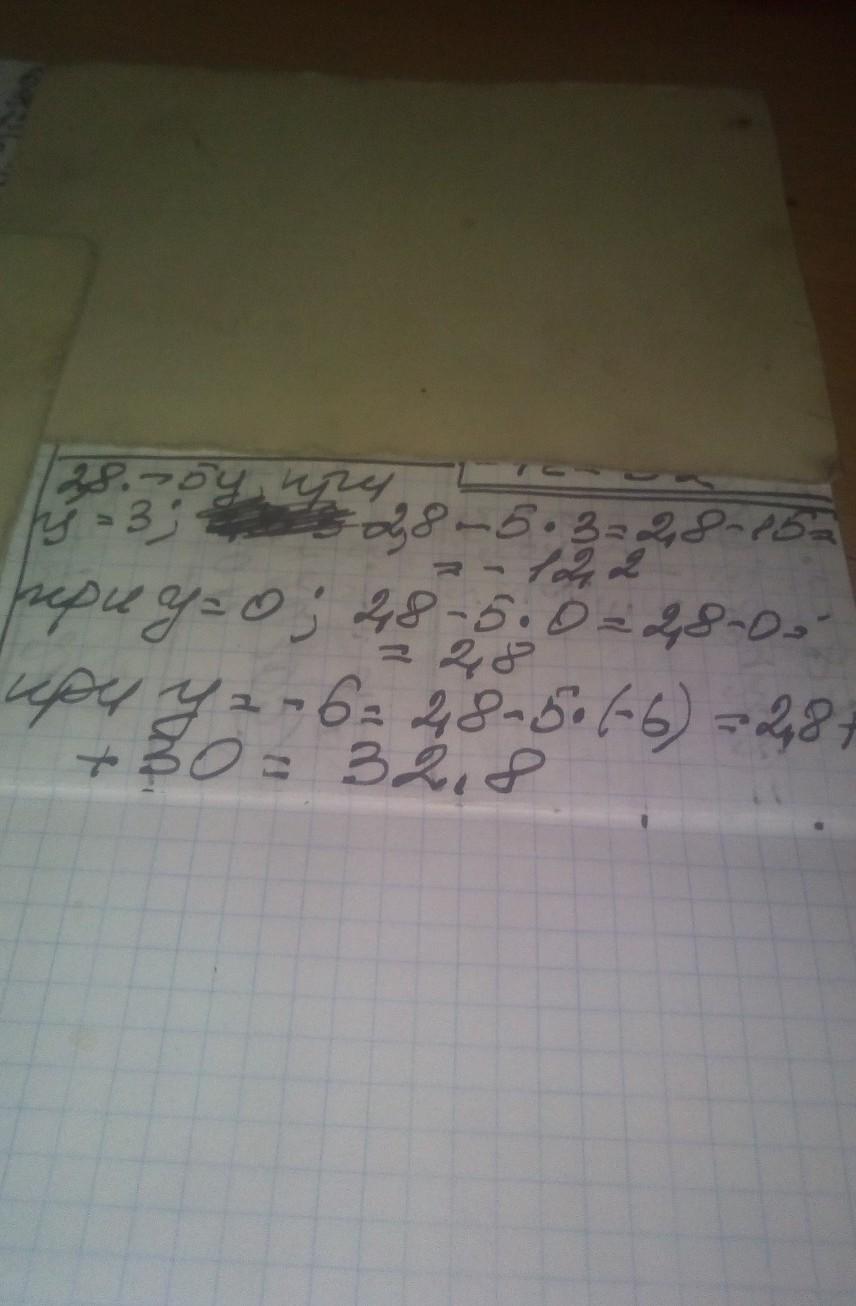 2,8. - 5y, при
y = 3; 2,8 - 5 · 3 = 2,8 - 15 =
= - 12,2
при y = 0; 2,8 - 5 · 0 = 2,8 - 0 =
= 2,8
при y = - 6 = 2,8 - 5 · (-6) = 2,8 +
+ 30 = 32,8